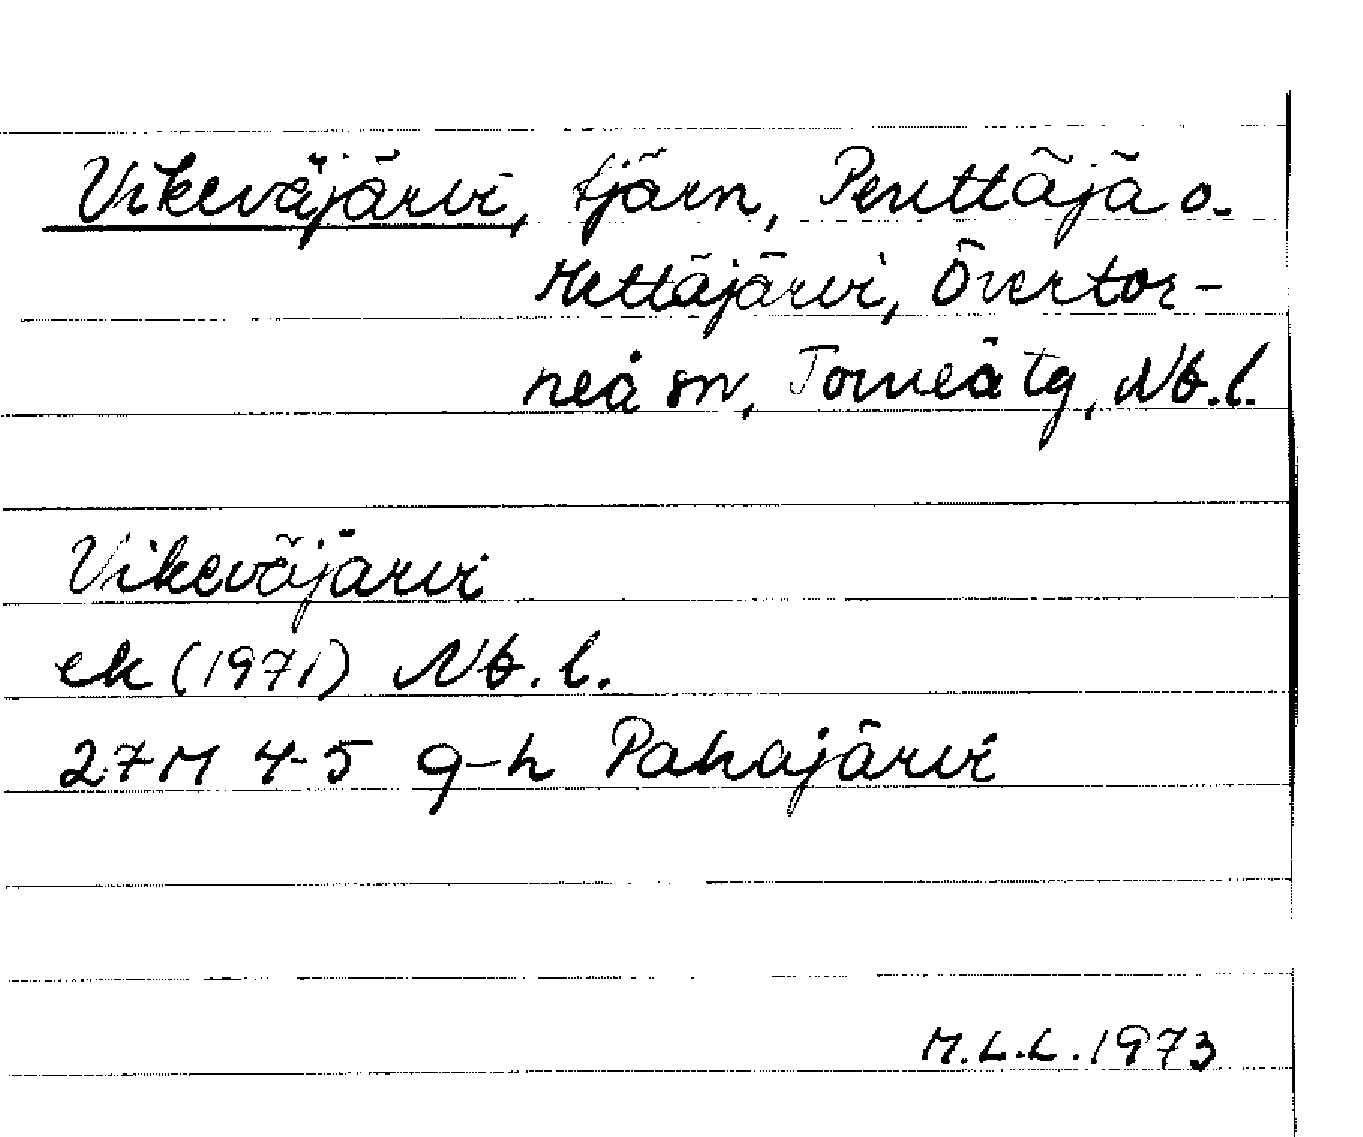 Vikeväjärvi, tjärn, Penttäjä o.
Mettäjärvi, Övertor-
neå sn, Torneå tg, Nb.l.
Vikeväjärvi
ek (1971) Nb.l.
27M 4-5 g-h Pahajärvi
M.L.L. 1973